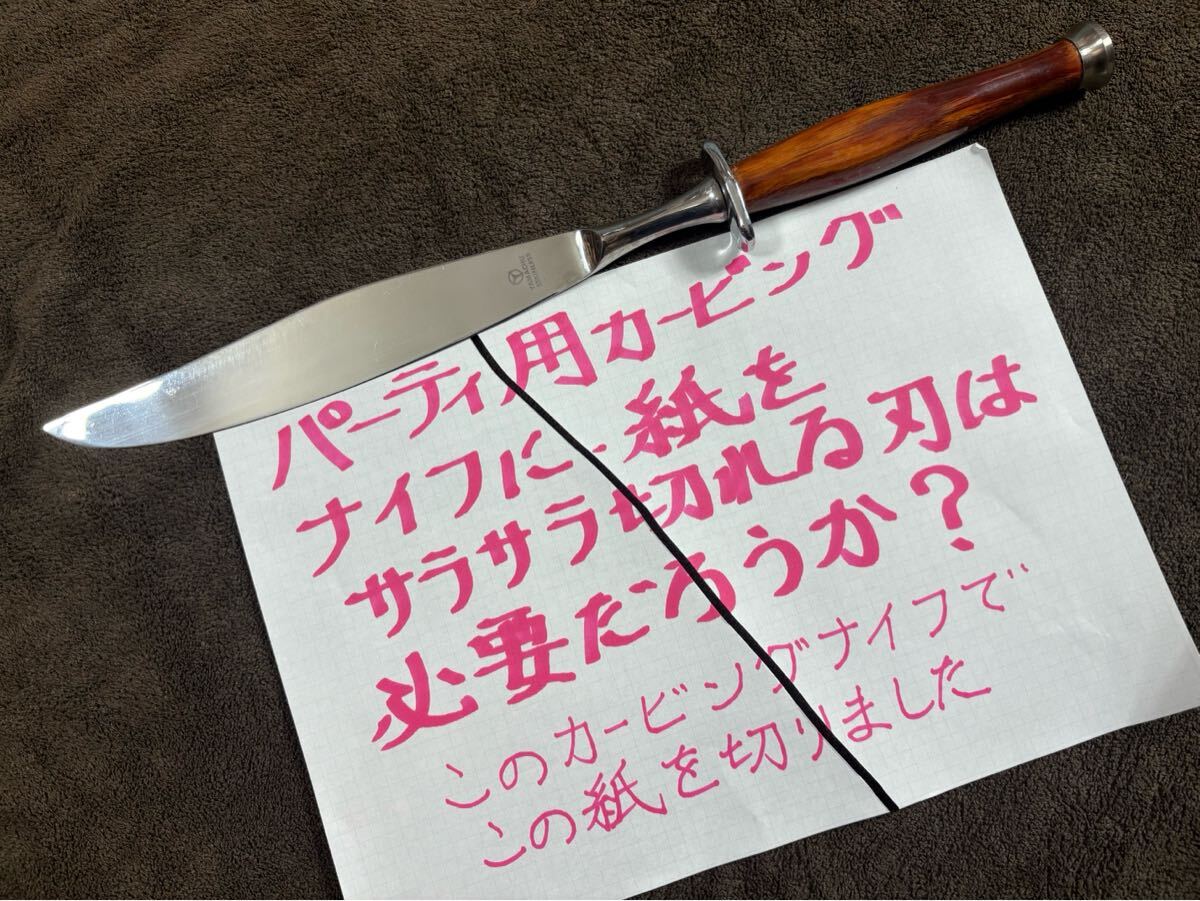 YAMACHU
STAINLESS
パーティ用カービング
ナイフに紙を
サラサラ切れる刃は
必要だろうか?
このカービングナイフで
この紙を切りました